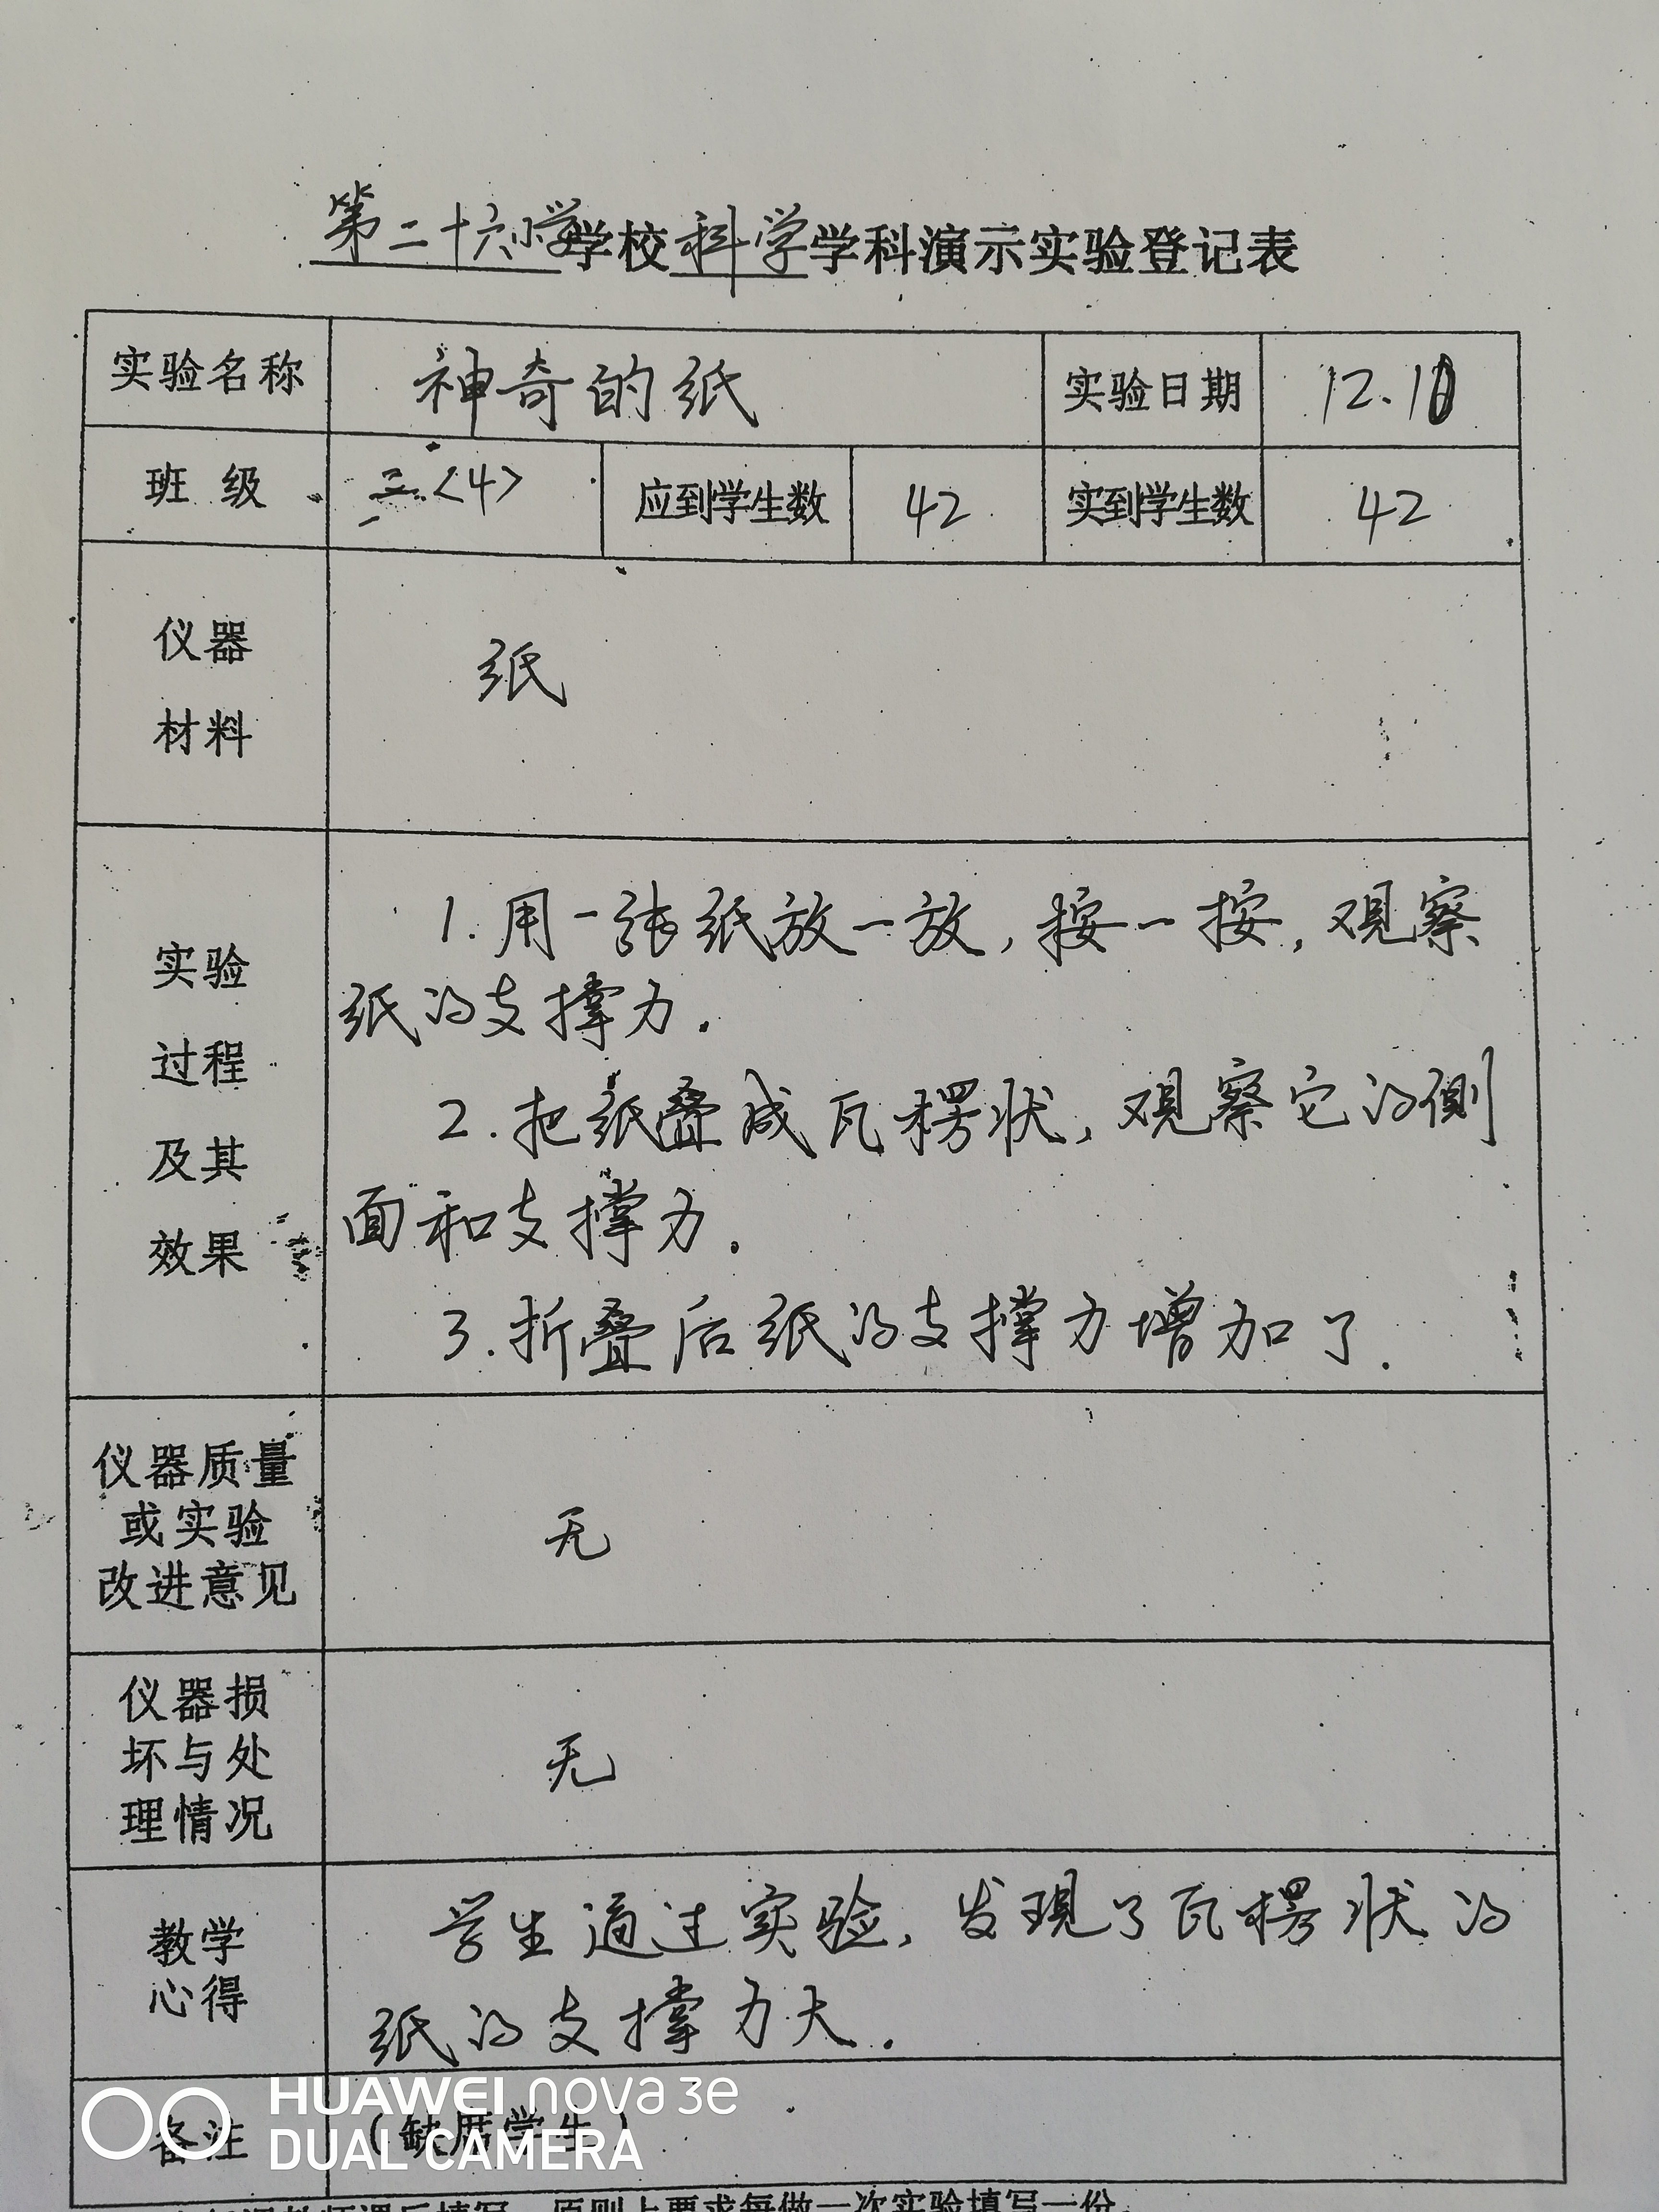 第二十六小学学校科学学科演示实验登记表
实验名称 神奇的纸 实验日期 12.10
班级 三<4> 应到学生数 42 实到学生数 42
仪器
材料
纸
实验
过程
及其
效果
1.用一张纸放一放,按一按,观察
纸的支撑力.
2.把纸叠成瓦楞状,观察它的侧
面和支撑力.
3.折叠后纸的支撑力增加了.
仪器质量
或实验
改进意见
无
仪器损
坏与处
理情况
无
教学
心得
学生通过实验,发现了瓦楞状的
纸的支撑力大.
备注 (缺席学生)
HUAWEI nova 3e
DUAL CAMERA
课后填写,原则上要求每做一次实验填写一份.